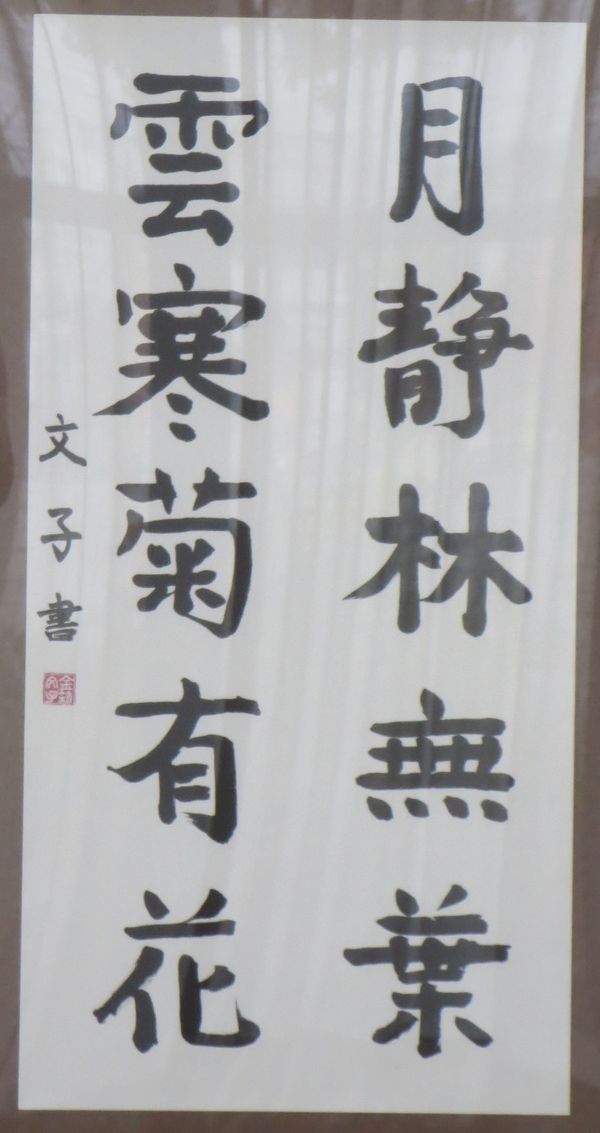 月静林無葉
雲寒菊有花
文子書